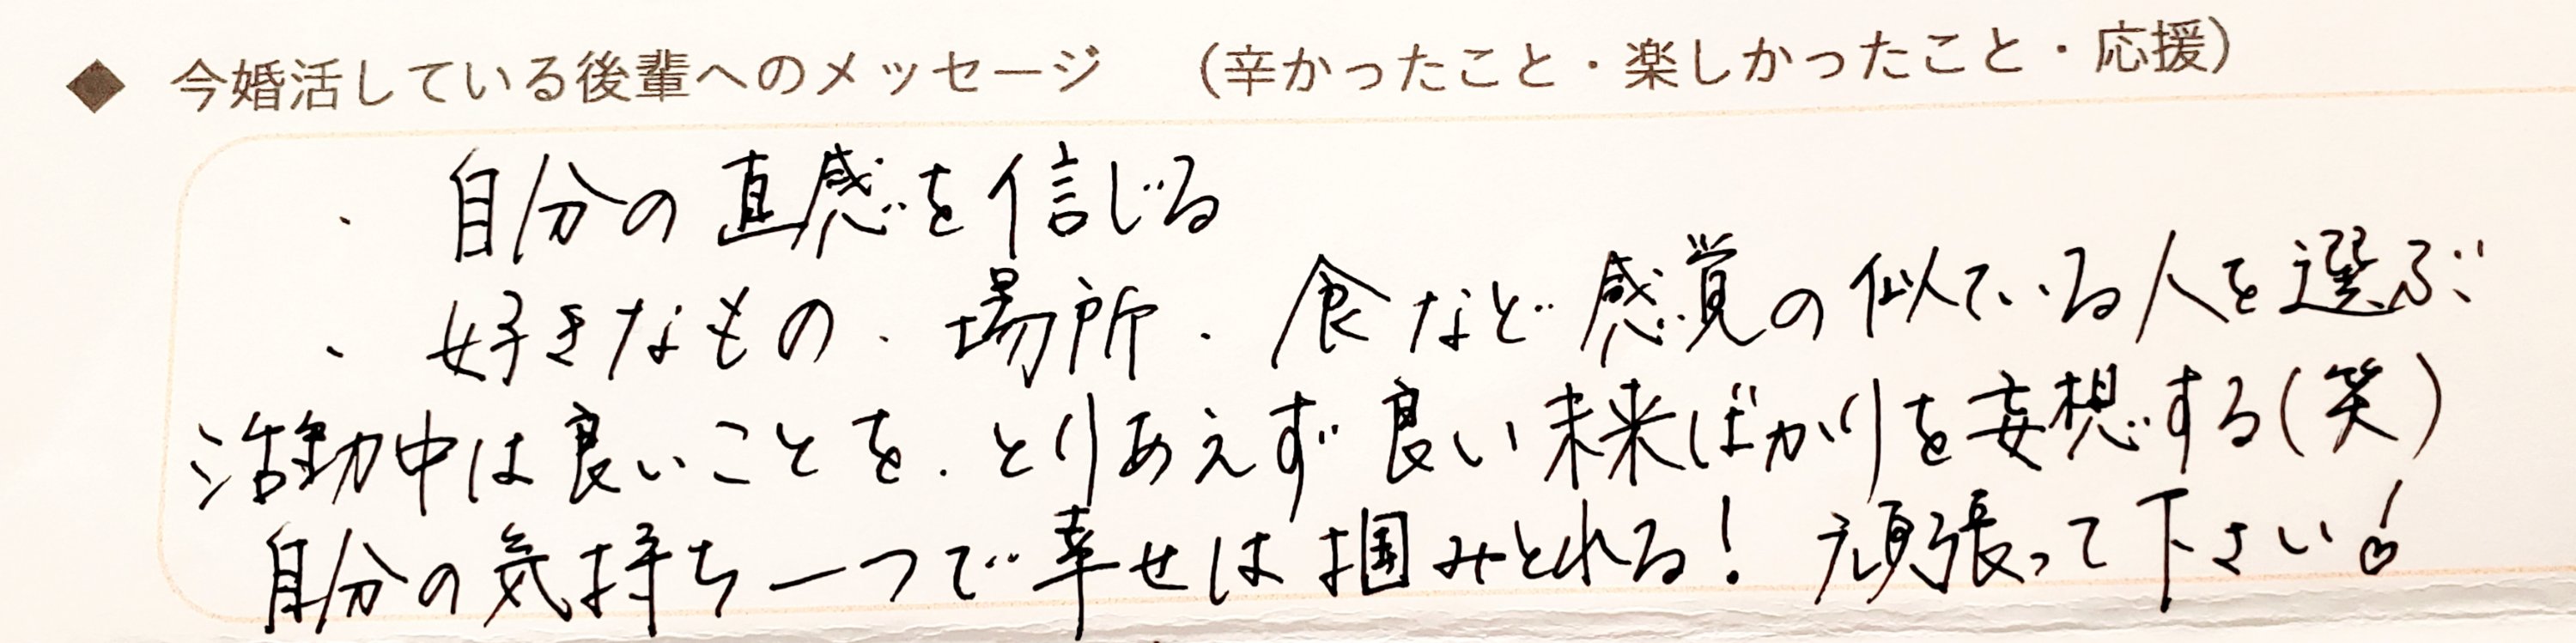 ◆ 今婚活している後輩へのメッセージ （辛かったこと・楽しかったこと・応援）
・ 自分の直感を信じる
・ 好きなもの、場所、食など感覚の似ている人を選ぶ
活動中は良いことを、とりあえず良い未来ばかりを妄想する(笑)
自分の気持ち一つで幸せは掴みとれる! 頑張って下さい